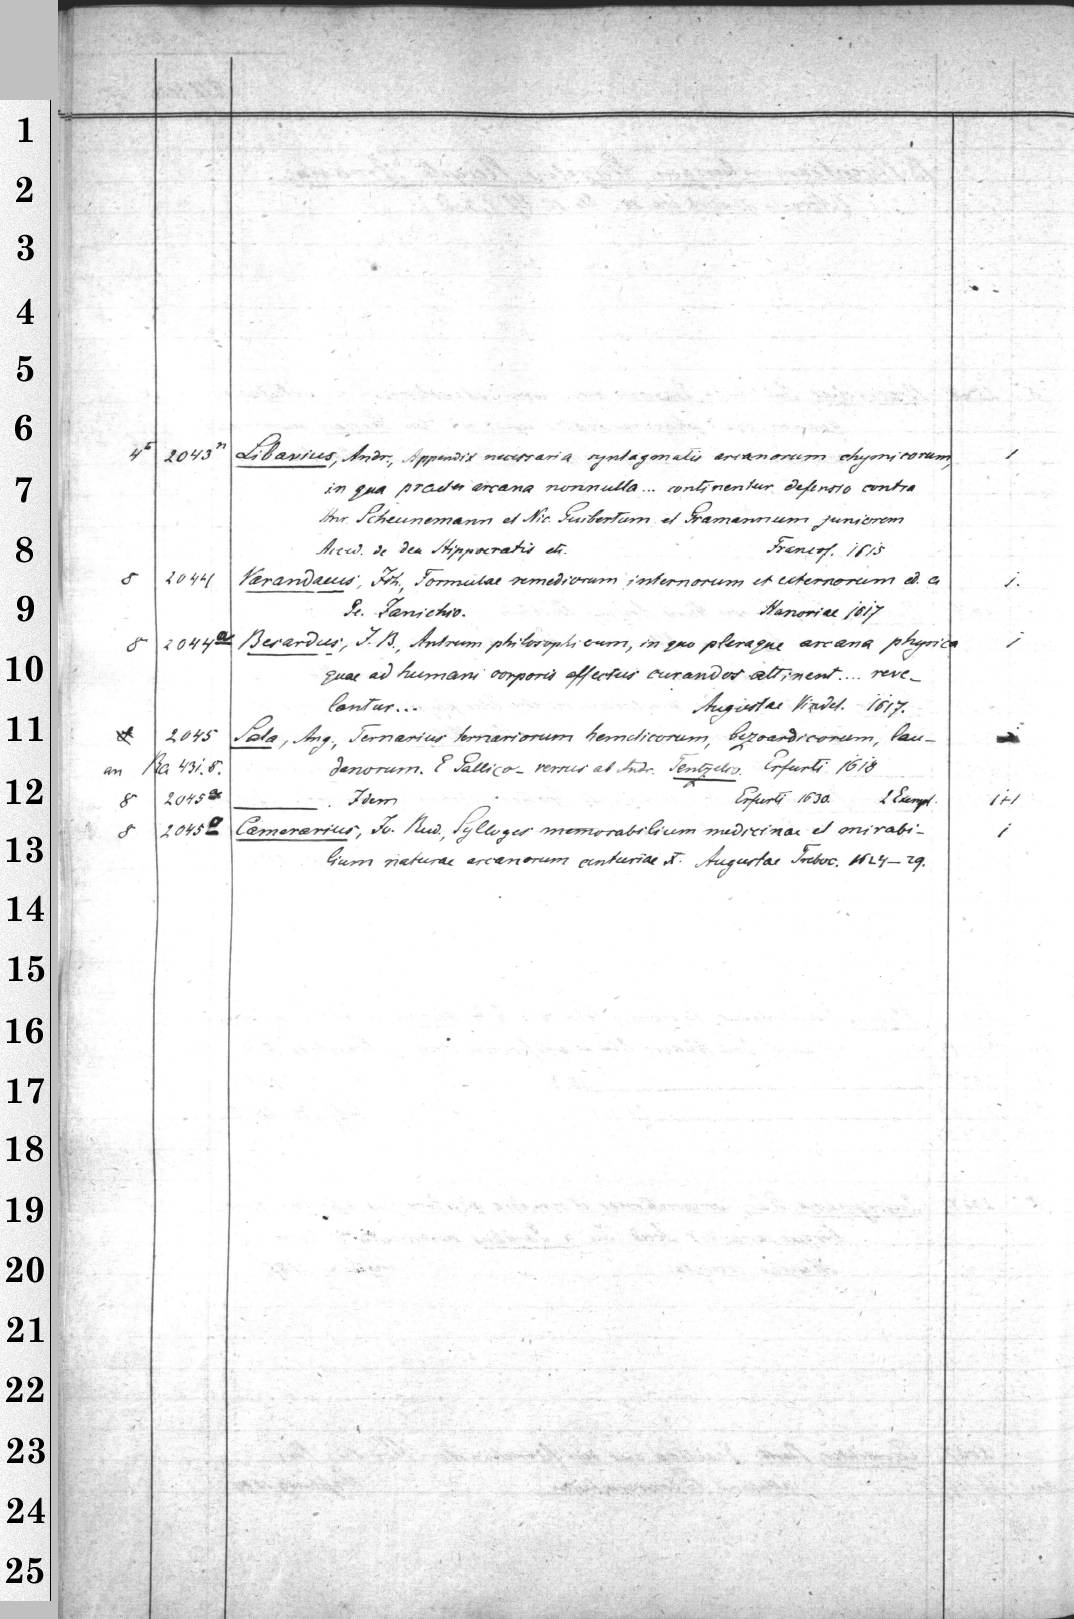 1
2
3
4
5
6
4° 2043n Libavius, Andr., Appendix necessaria syntagmatis arcanorum chymicorum, 1
7
in qua praeter arcana nonnulla... continentur defensio contra
Hnr. Scheunemann et Nic. Guibertum et Gramannum juniorem
8
Acced. de dea Hippocratis etc. Francof. 1615
8 2044 Varandaeus, Joh., Formulae remediorum internorum et externorum ed. a 1.
9
Pe. Janichio. Hanoviae 1617
8 2044a Besardus, J. B., Antrum philosophicum, in quo pleraque arcana physica 1
10
quae ad humani corporis affectus curandos attinent.... reve-
lantur... Augustae Vindel. 1617.
11
2045 Sala, Ang., Ternarius ternariorum hemeticorum, bezoardicorum, lau-
an Ra 431.8. danorum. E Gallico versus ab Andr. Tentzelio. Erfurti 1618
12
8 2045a Idem Erfurti 1630. 2 Exempl. 1+1
8 2045e Camerarius, Jo. Rud., Sylloges memorabilium medicinae et mirabi- 1
13
lium naturae arcanorum centuriae X. Augustae Treboc. 1624-29.
14
15
16
17
18
19
20
21
22
23
24
25